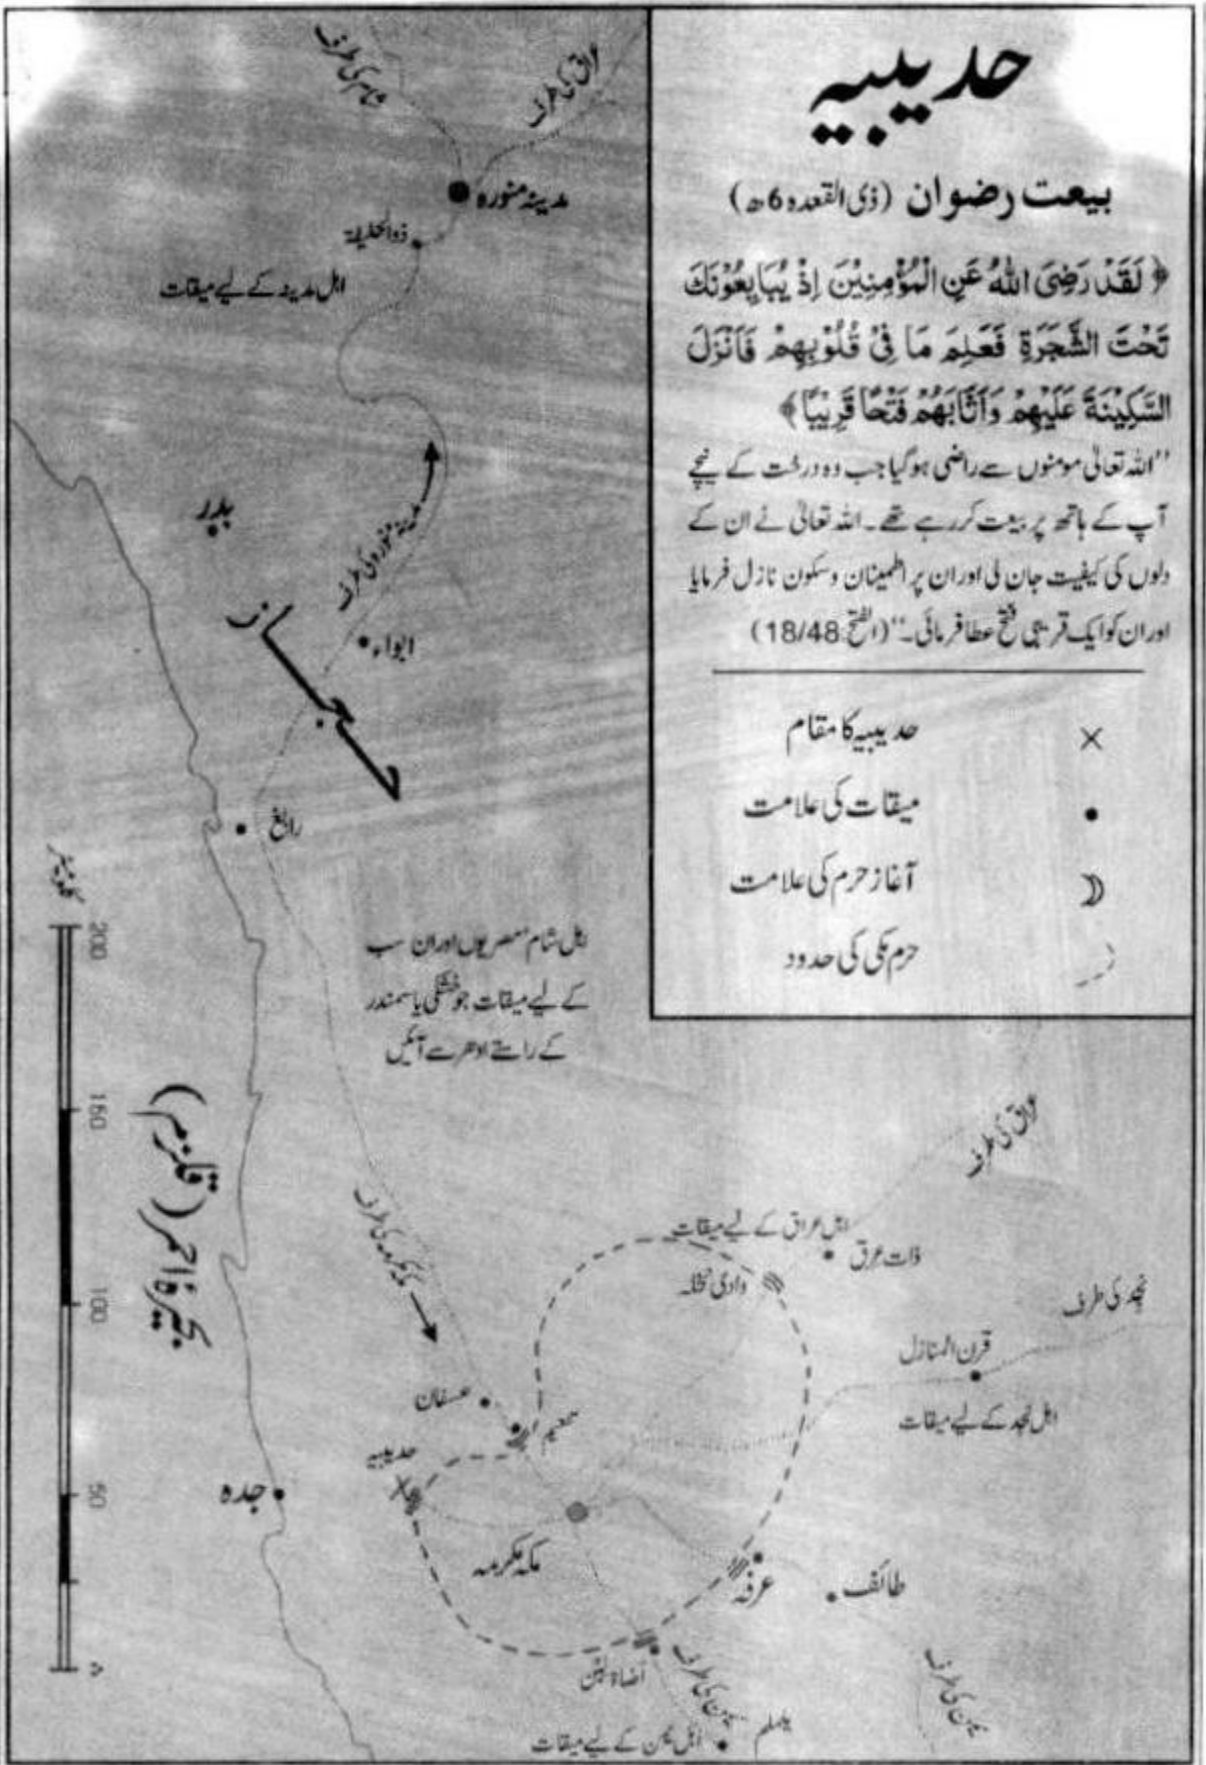 حدیبیہ
بیعت رضوان (ذی القعدہ 6ھ)
﴿ لَقَدْ رَضِیَ اللّٰہُ عَنِ الْمُؤْمِنِیْنَ اِذْ یُبَایِعُوْنَکَ
تَحْتَ الشَّجَرَۃِ فَعَلِمَ مَا فِیْ قُلُوْبِہِمْ فَاَنْزَلَ
السَّکِیْنَۃَ عَلَیْہِمْ وَاَثَابَہُمْ فَتْحًا قَرِیْبًا ﴾
"اللہ تعالیٰ مومنوں سے راضی ہوگیا جب وہ درخت کے نیچے
آپ کے ہاتھ پر بیعت کر رہے تھے۔ اللہ تعالیٰ نے ان کے
دلوں کی کیفیت جان لی اور ان پر اطمینان و سکون نازل فرمایا
اور ان کو ایک قریبی فتح عطا فرمائی۔" (الفتح: 18/48)
حدیبیہ کا مقام
میقات کی علامت
آغاز حرم کی علامت
حرم مکی کی حدود
شام کی طرف
عراق کی طرف
مدینہ منورہ
ذوالحلیفۃ
اہل مدینہ کے لیے میقات
بدر
مدینہ منورہ کی طرف
ابواء
حجاز
رابغ
کلومیٹر
200
150
100
50
اہل شام مصریوں اور ان سب
کے لیے میقات جو خشکی یا سمندر
کے راستے ادھر سے آئیں
بحیرۂ احمر (قلزم)
مکہ مکرمہ کی طرف
عراق کی طرف
اہل عراق کے لیے میقات
ذات عرق
وادی نخلہ
نجد کی طرف
قرن المنازل
اہل نجد کے لیے میقات
عسفان
تنعیم
حدیبیہ
جدہ
مکہ مکرمہ
عرفہ
طائف
اضاۃ لبن
یمن کی طرف
یمن کی طرف
یلملم
اہل یمن کے لیے میقات